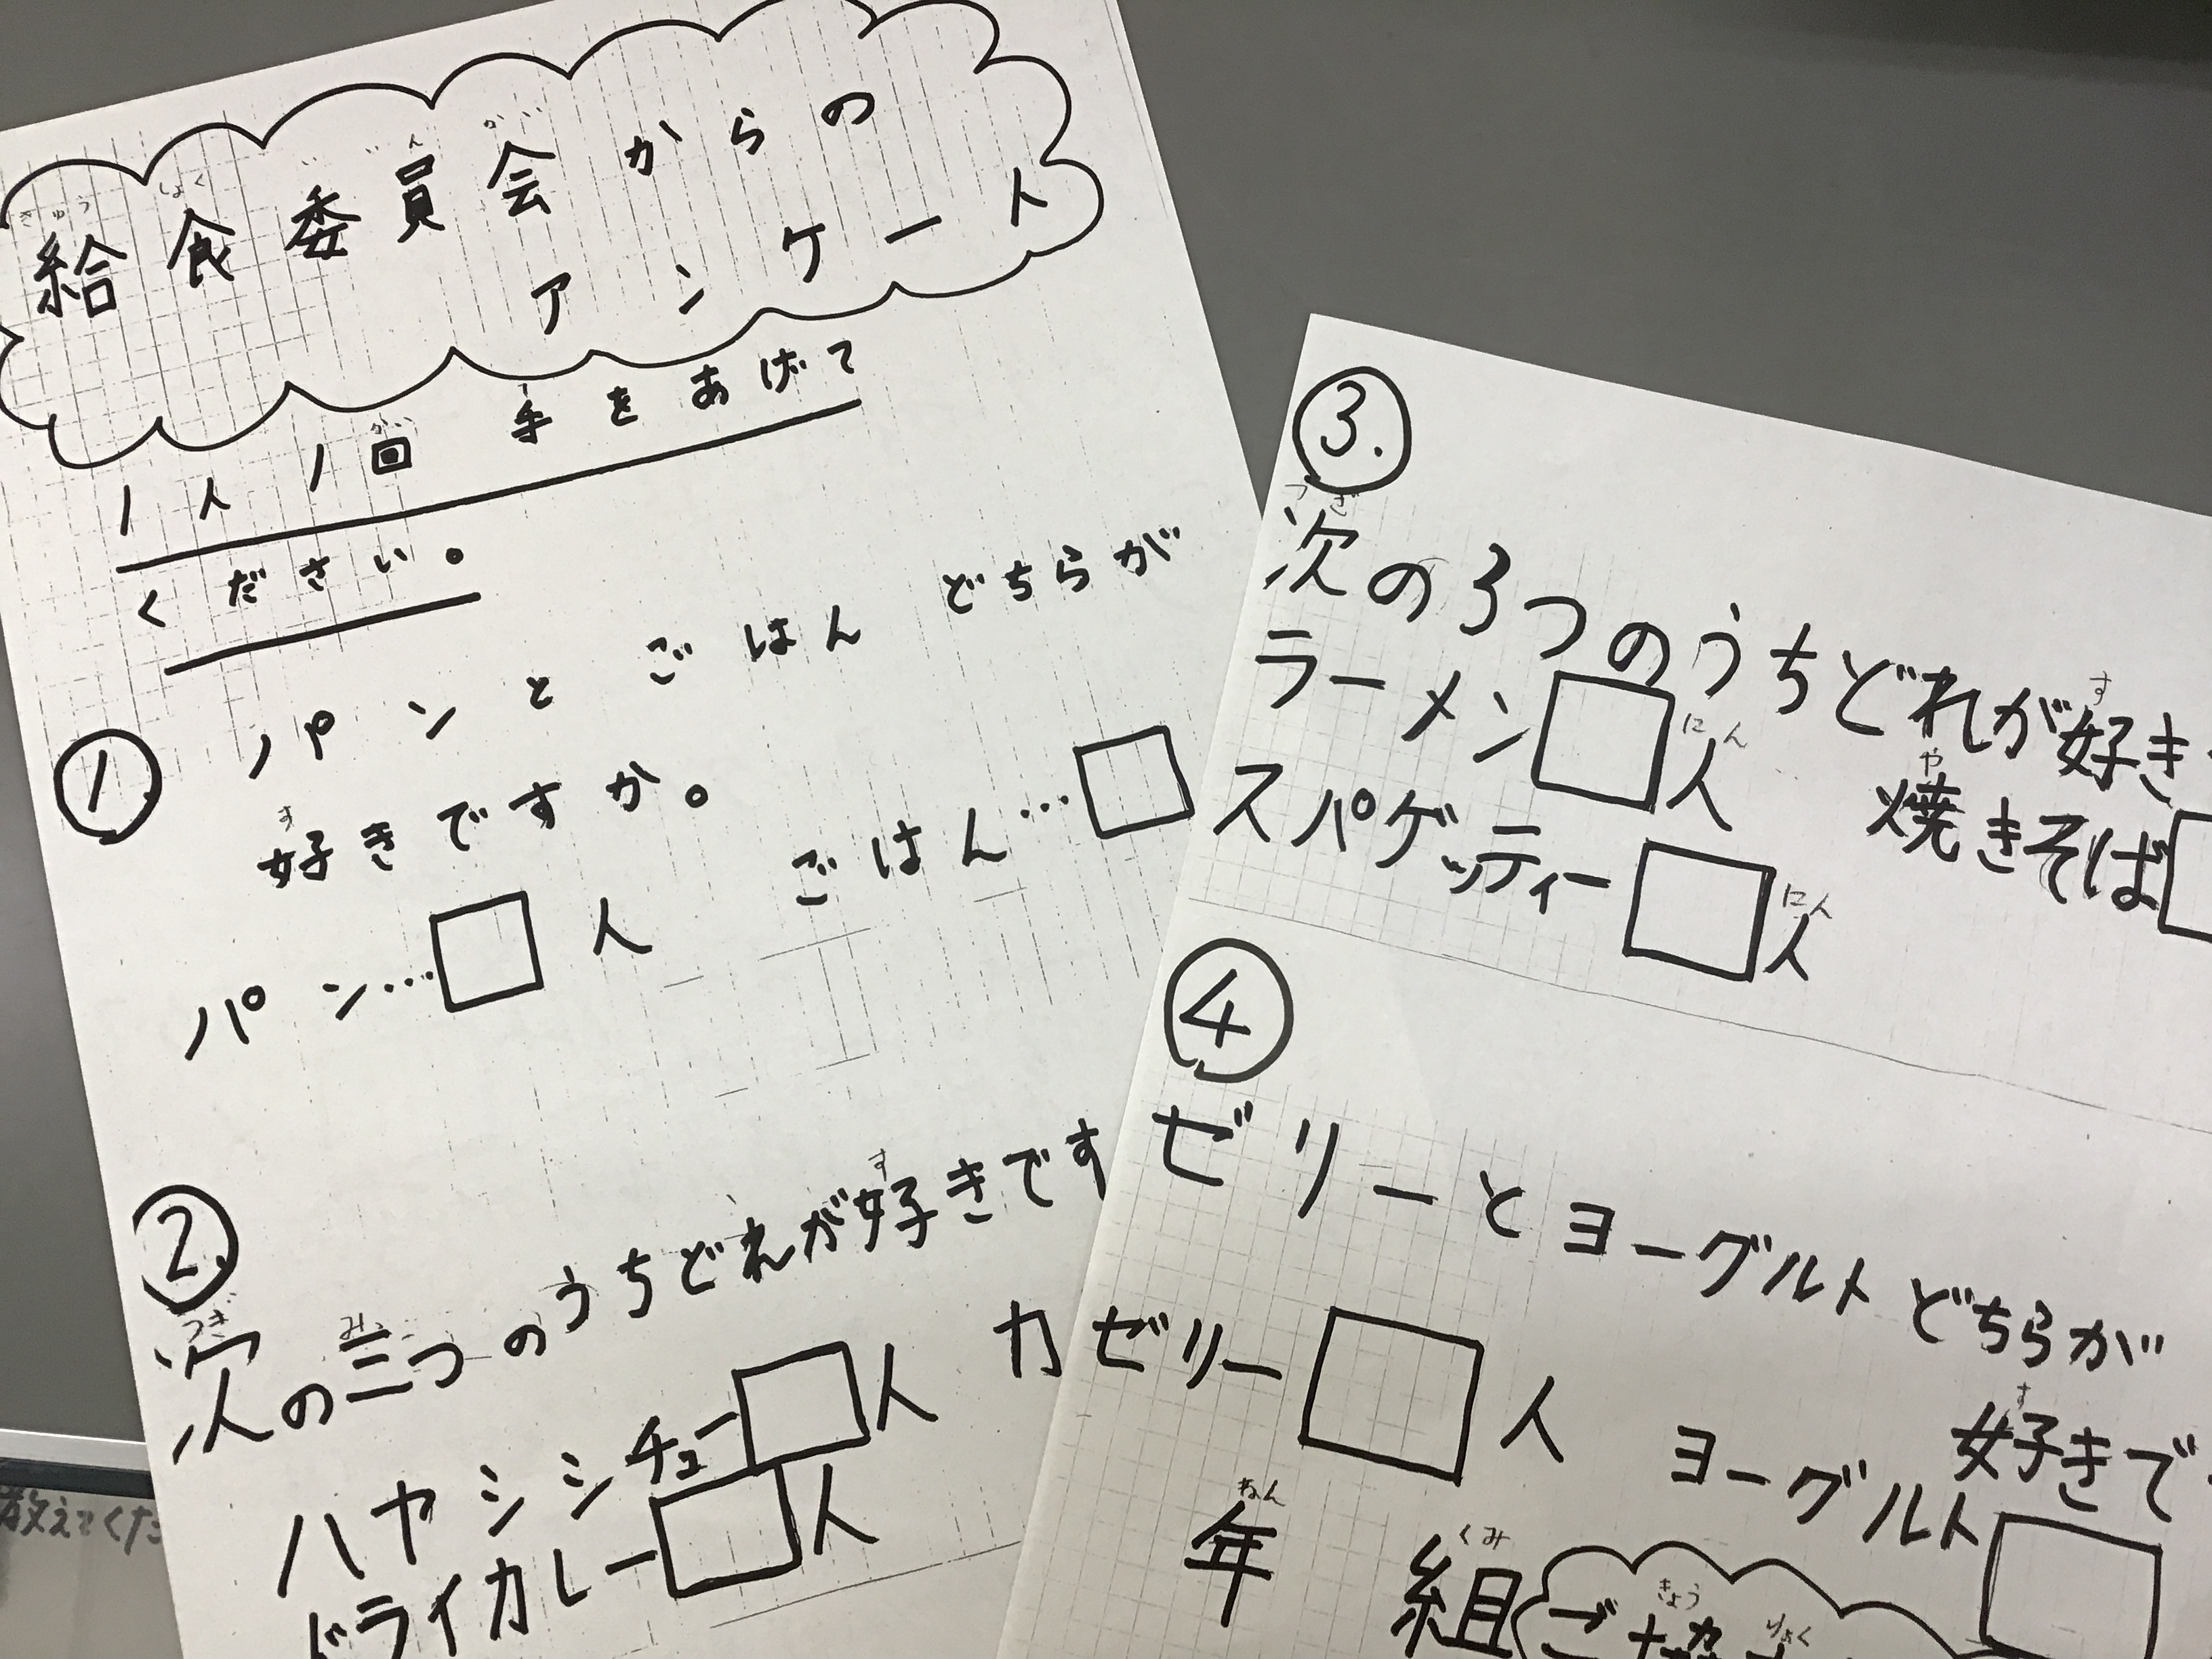 給食委員会からの
アンケート
1人1回 手をあげて
ください。
1. パンと ごはん どちらが
好きですか。
パン…□人 ごはん…□
2. 次の三つのうちどれが好きです
ハヤシシチュー□人 カ
ドライカレー□人
3. 次の3つのうちどれが好き
ラーメン□人 焼きそば□
スパゲッティー□人
4 ゼリーとヨーグルトどちらが
好きで
ゼリー□人 ヨーグルト□
年 組
ご協
教えてくだ